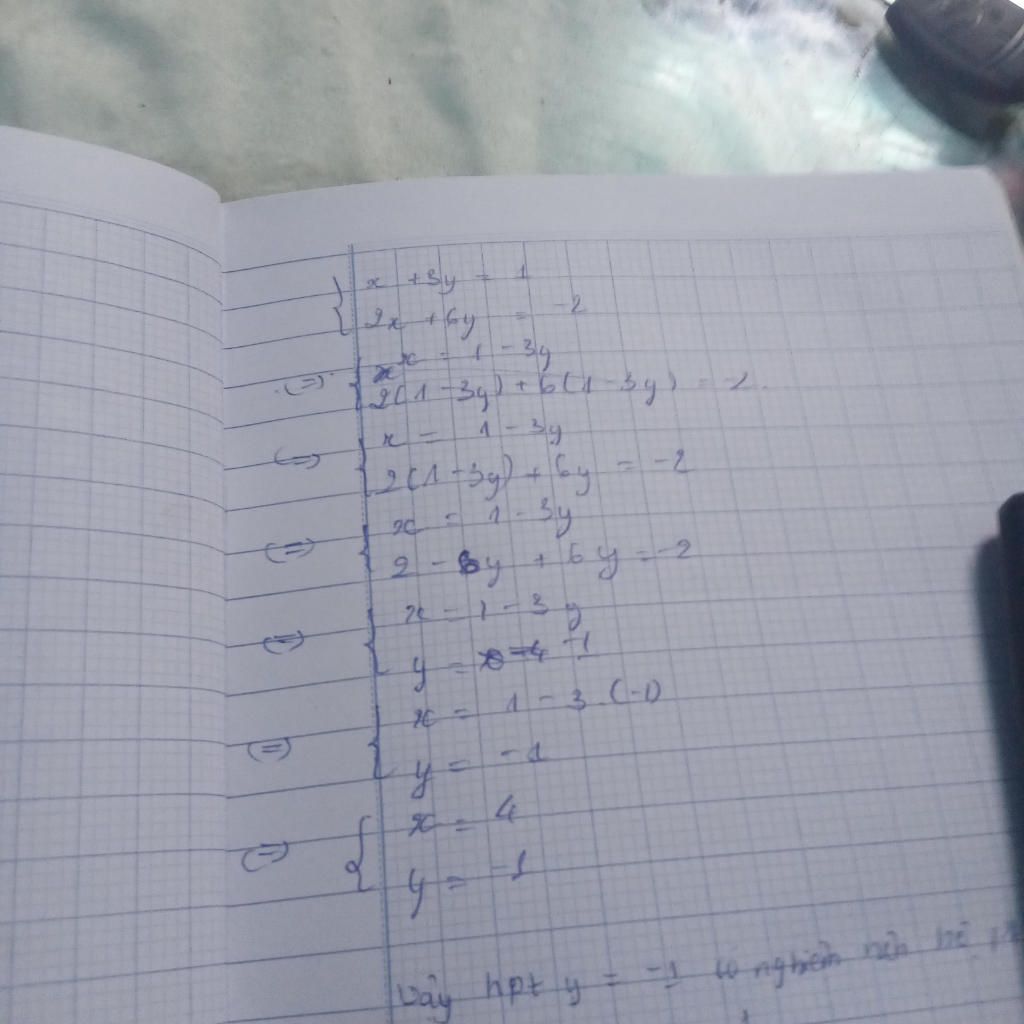 x + 3y = 1
2x + 6y = -2
x = 1 - 3y
2(1 - 3y) + 6(1 - 3y) = -2.
x = 1 - 3y
2(1 - 3y) + 6y = -2
x = 1 - 3y
2 - 6y + 6y = -2
x = 1 - 3y
y = -1
x = 1 - 3.(-1)
y = -1
x = 4
y = -1
Vậy hpt y = -1 có nghiệm nên hệ